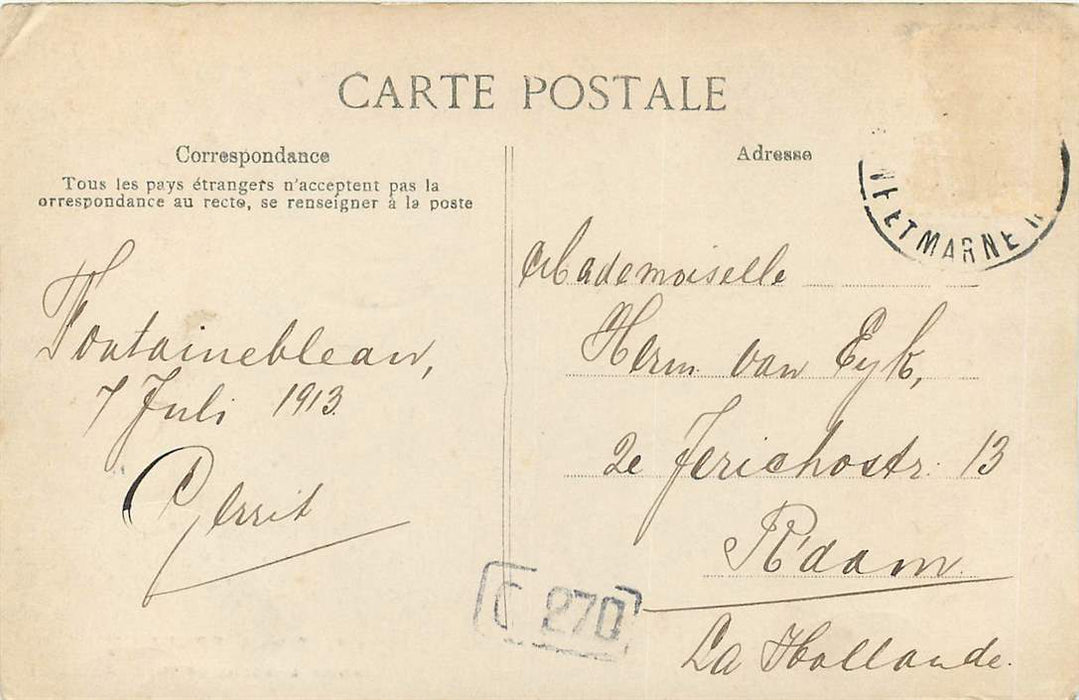 CARTE POSTALE
Correspondance
Tous les pays étrangers n'acceptent pas la
orrespondance au recto, se renseigner à la poste
Fontainebleau,
7 Juli 1913.
Gerrit
Adresse
ET MARNE
Mademoiselle
Herm van Eyk,
2e Jerichostr. 13
R'dam
La Hollande.
C 270